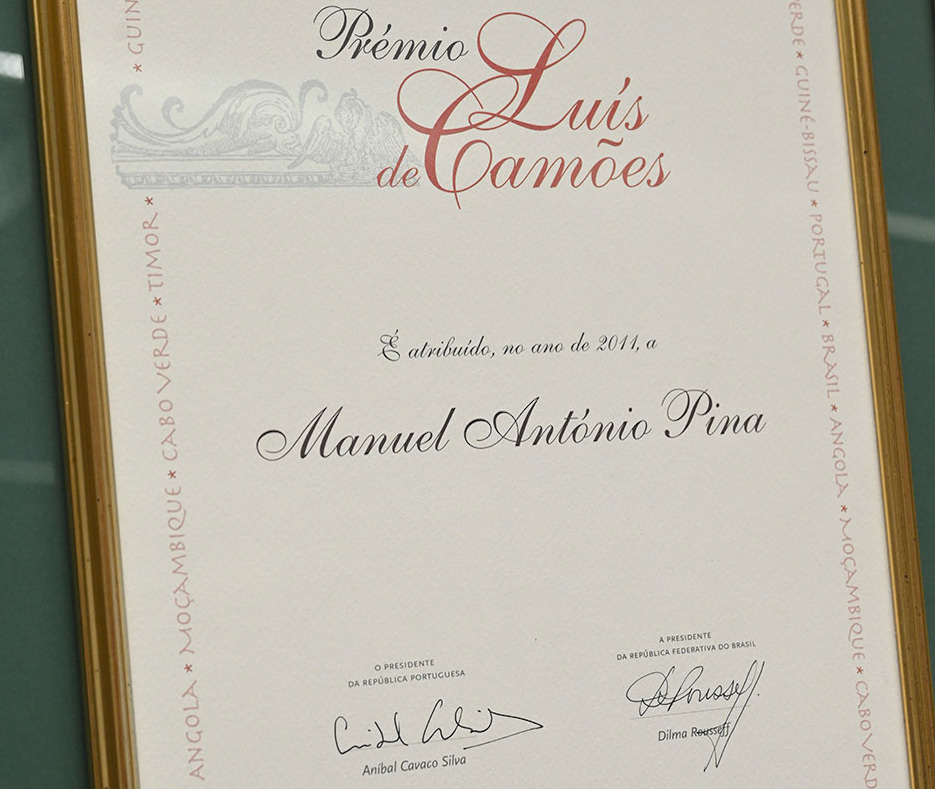 Prémio
Luís
de Camões
É atribuído, no ano de 2011, a
Manuel António Pina
O PRESIDENTE
DA REPÚBLICA PORTUGUESA
Aníbal Cavaco Silva
A PRESIDENTE
DA REPÚBLICA FEDERATIVA DO BRASIL
Dilma Rousseff
ANGOLA * MOÇAMBIQUE * CABO VERDE * TIMOR * * GUIN
VERDE * GUINÉ-BISSAU * PORTUGAL * BRASIL * ANGOLA * MOÇAMBIQUE * CABO VERD